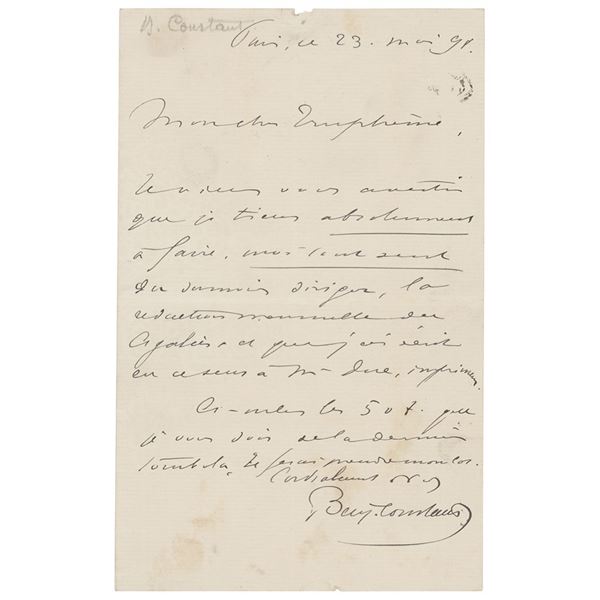 B. Constant
Paris, ce 23. mai 98.
Mon cher Truphème,
Je viens vous avertir
que je tiens absolument
à faire, moi tout seul
du dernier, la
rédaction mensuelle du
et que j'ai écrit
en ce sens à Mr imprimeur.
Ci-inclus les 50 f. que
je vous dois de la dernière
tombola, Je ferai prendre mon lot.
Cordialement à vs
Benj. Constant